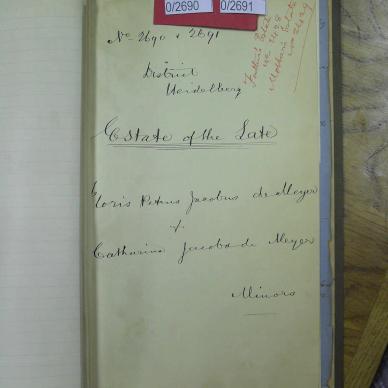 0/2690 0/2691
No 2690 & 2691
Father's Estate
No 2428
Mother's Estate
No 2429
District
Heidelberg
Estate of the Late
Floris Petrus Jacobus de Meyer
&
Catharina Jacoba de Meyer
Minors